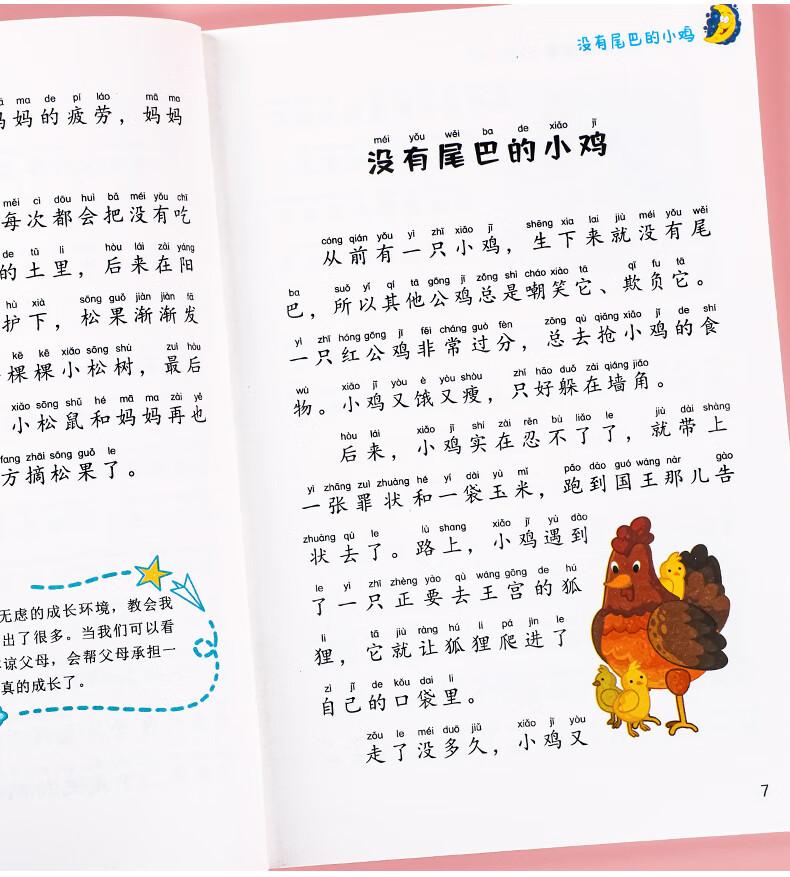 mā ma de pí láo mā ma
妈妈的疲劳，妈妈
měi cì dōu huì bǎ méi yǒu chī
每次都会把没有吃
de tǔ li hòu lái zài yáng
的土里，后来在阳
hù xià sōng guǒ jiàn jiàn fā
护下，松果渐渐发
kē kē xiǎo sōng shù zuì hòu
棵棵小松树，最后
xiǎo sōng shǔ hé mā ma zài yě
小松鼠和妈妈再也
fang zhāi sōng guǒ le
方摘松果了。
无虑的成长环境，教会我
出了很多。当我们可以看
谅父母，会帮父母承担一
真的成长了。
没有尾巴的小鸡
méi yǒu wěi ba de xiǎo jī
没有尾巴的小鸡
cóng qián yǒu yì zhī xiǎo jī shēng xia lai jiù méi yǒu wěi
从前有一只小鸡，生下来就没有尾
ba suǒ yǐ qí tā gōng jī zǒng shì cháo xiào tā qī fu tā
巴，所以其他公鸡总是嘲笑它、欺负它。
yì zhī hóng gōng jī fēi cháng guò fèn zǒng qù qiǎng xiǎo jī de shí
一只红公鸡非常过分，总去抢小鸡的食
wù xiǎo jī yòu è yòu shòu zhǐ hǎo duǒ zài qiáng jiǎo
物。小鸡又饿又瘦，只好躲在墙角。
hòu lái xiǎo jī shí zài rěn bù liǎo le jiù dài shàng
后来，小鸡实在忍不了了，就带上
yì zhāng zuì zhuàng hé yí dài yù mǐ pǎo dào guó wáng nàr gào
一张罪状和一袋玉米，跑到国王那儿告
zhuàng qù le lù shang xiǎo jī yù dào
状去了。路上，小鸡遇到
le yì zhī zhèng yào qù wáng gōng de hú
了一只正要去王宫的狐
li tā jiù ràng hú li pá jìn le
狸，它就让狐狸爬进了
zì jǐ de kǒu dai li
自己的口袋里。
zǒu le méi duō jiǔ xiǎo jī yòu
走了没多久，小鸡又
7